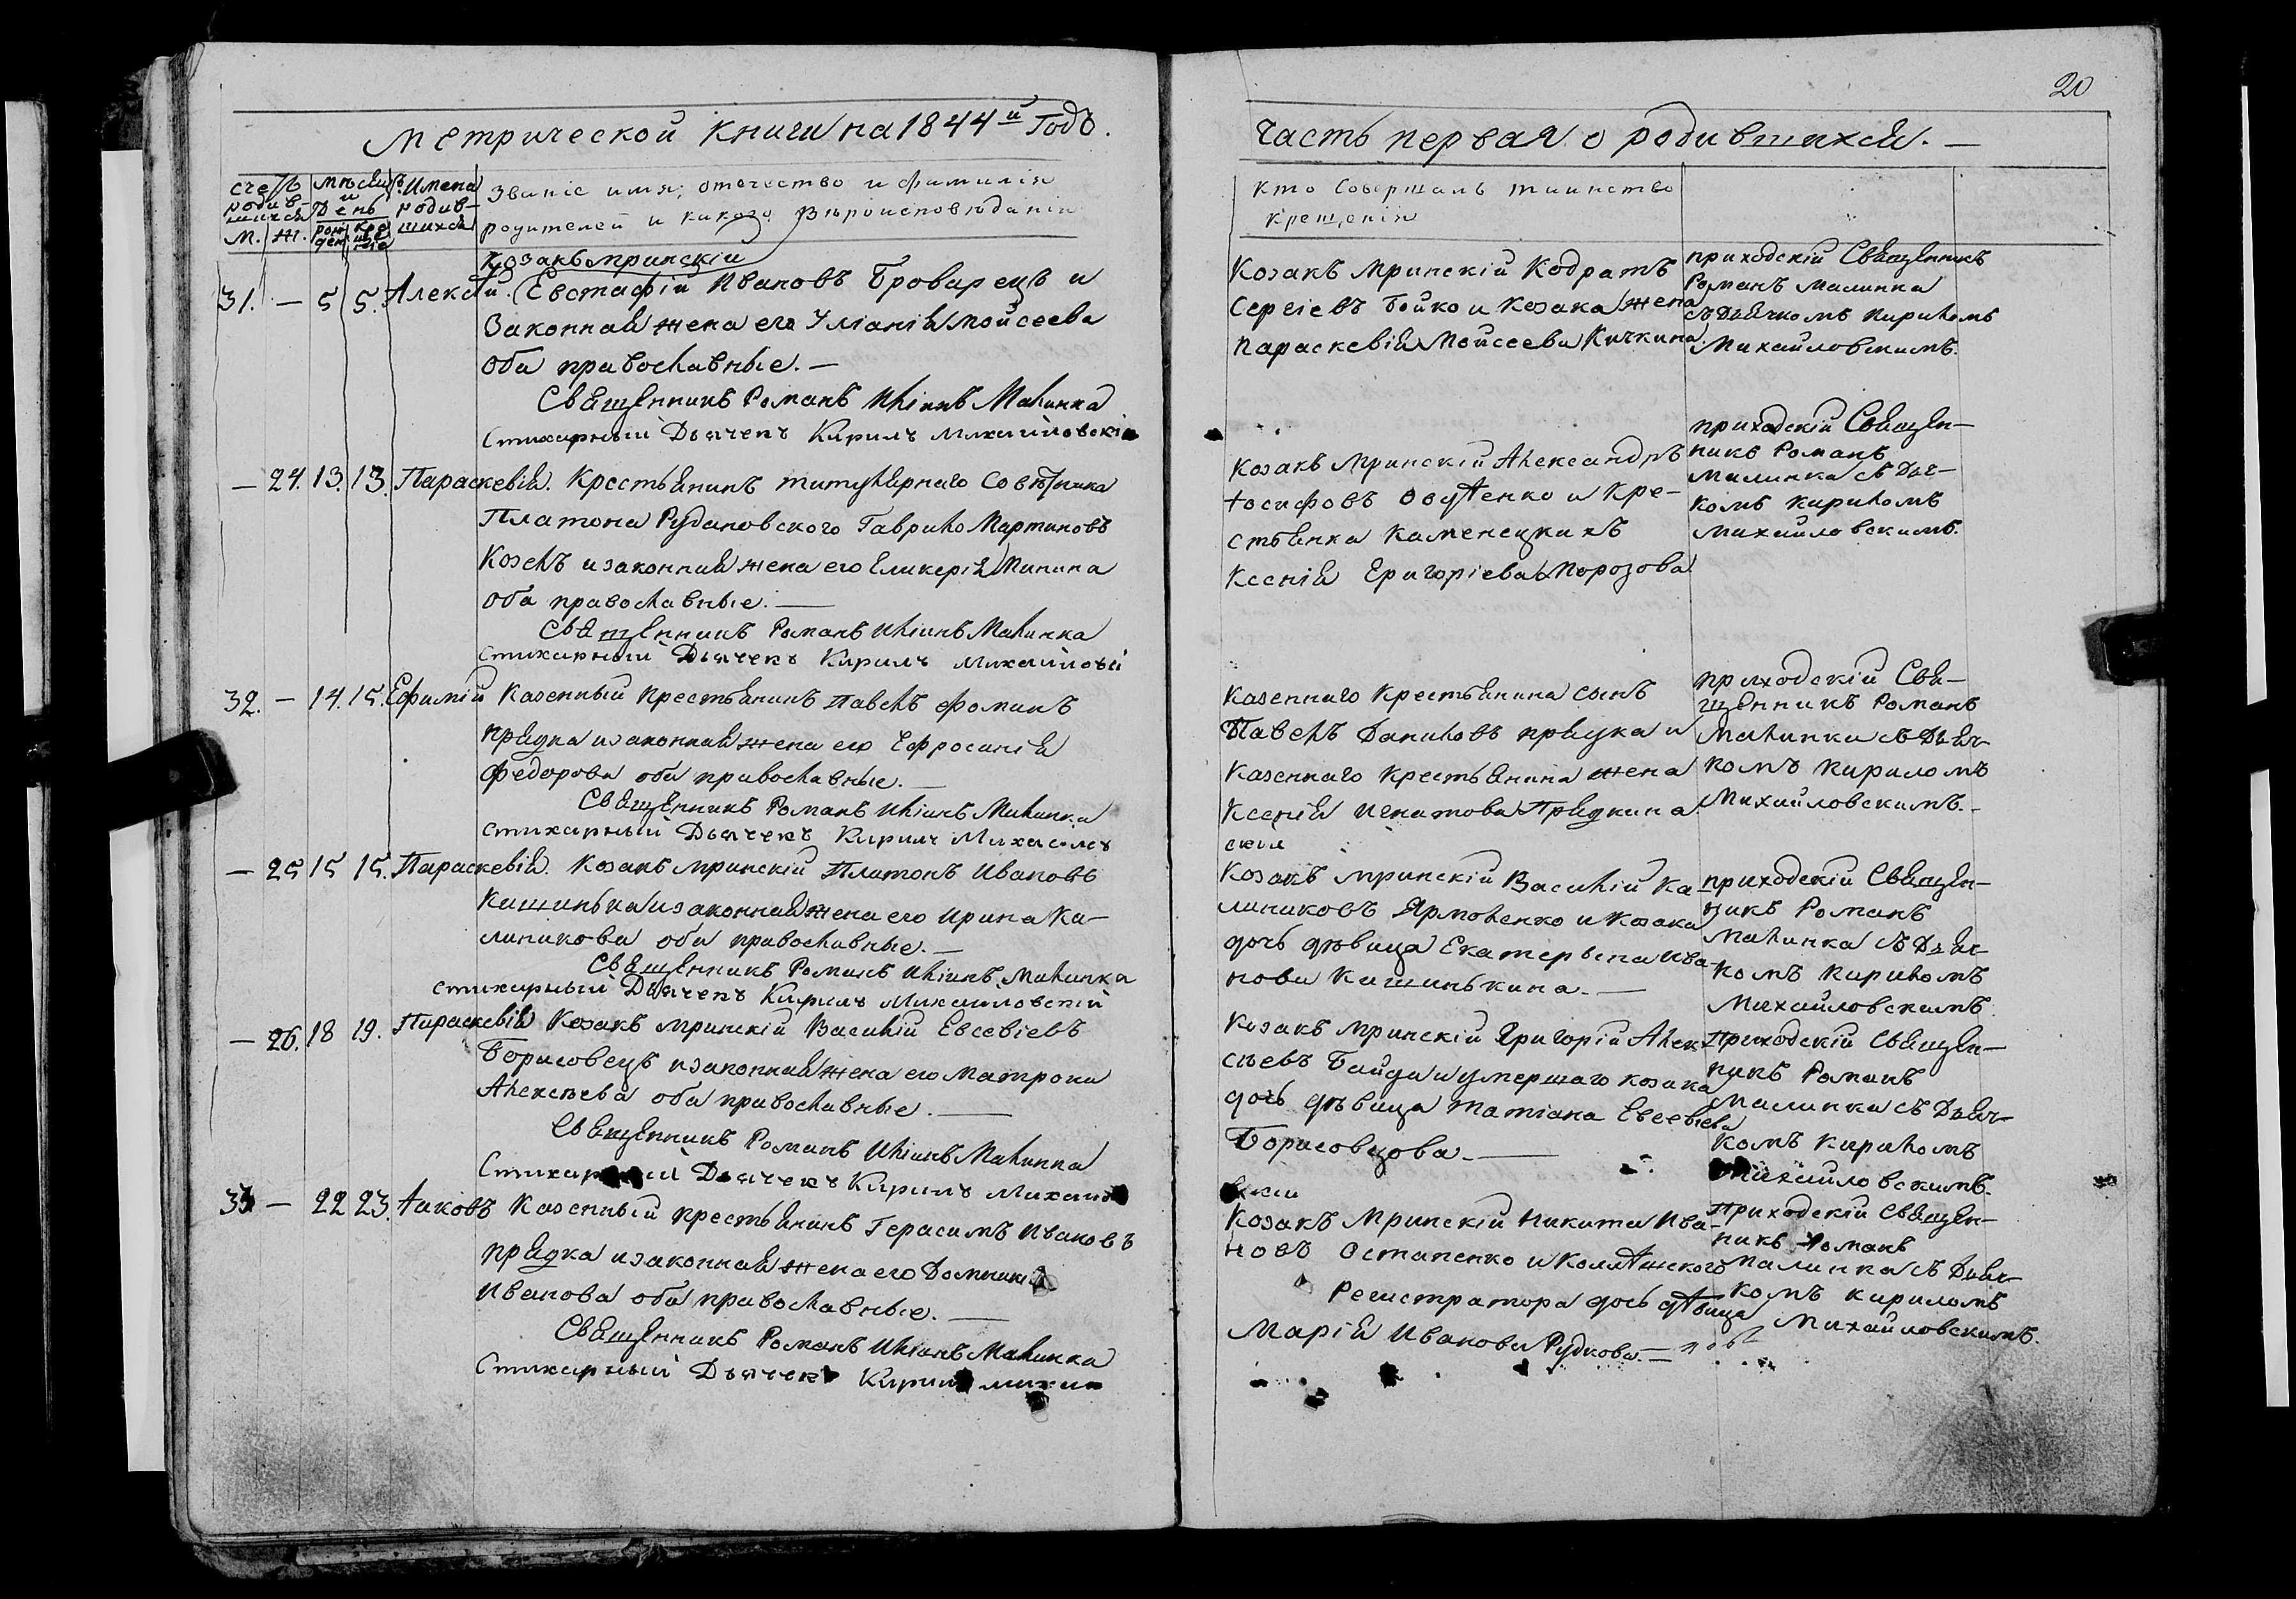 Метрической книги на 1844й Годъ.
счетъ родив-шихся
М. Ж.
Мѣсяцъ и День
рожденія
крещенія
Имена родив-шихся
Званіе имя, отечество и фамилія
родителей и какого вѣроисповѣданія
Козакъ мринскій
31. — 5 5. Алексій. Евстафій Ивановъ Броварецъ и
Законная жена его Уліанія Моисеева
оба православные. —
Священникъ Романъ Иліинъ Малинка
Стихарный Дьячекъ Кирилъ Михайловскій
— 24. 13. 13. Параскевія. Крестьянинъ титулярнаго Совѣтника
Платона Рудановского Гаврило Мартиновъ
Козелъ и законная жена его Гликерія Минина
оба православные. —
Священникъ Романъ Иліинъ Малинка
стихарный Дьячекъ Кирилъ Михайловъ
32. — 14. 15. Ефимій Казенный крестьянинъ Павелъ Фоминъ
прядка и законная жена его Ефросинія
Федорова оба православные. —
Священникъ Романъ Иліинъ Малинка
стихарный Дьячекъ Кирилъ Михайлов
— 25 15 15. Параскевія. Козакъ мринскій Платонъ Ивановъ
Кишинька и законная жена его Ирина Ка-
линикова оба православные. —
Священникъ Романъ Иліинъ Малинка
стихарный Дьячекъ Кирилъ Михайловскій
— 26. 18 19. Параскевія Козакъ мринскій Василій Евсевіевъ
Борисовецъ и законная жена его Матрона
Алексѣева оба православные. —
Священникъ Романъ Иліинъ Малинка
Стихарный Дьячекъ Кирилъ Михайло
33 — 22 23. Іаковъ Казенный крестьянинъ Герасимъ Ивановъ
прядка и законная жена его Домникія
Иванова оба православные. —
Священникъ Романъ Иліинъ Малинка
Стихарный Дьячекъ Кирил Михай
20
Часть первая о родившихся. —
Кто Совершалъ таинство
крещенія
Козакъ Мринскій Кодратъ
Сергіевъ Бойко и Козака жена
Параскевія Моисеева Кичкина.
приходскій Священникъ
Романъ Малинка
съ Дьячкомъ Кириломъ
Михайловскимъ.
Козакъ Мринскій Александръ
Іосифовъ Овдѣенко и Кре-
стьянка Каменецкихъ
Ксенія Григоріева Морозова
приходскій Священ-
никъ Романъ
Малинка съ Дья-
комъ Кириломъ
Михайловскимъ.
Казеннаго Крестьянина сынъ
Павелъ Даниловъ прядка и
Казеннаго Крестьянина жена
Ксенія Игнатова Прядкина.
приходскій Свя-
щенникъ Романъ
Малинка съ Дьяч-
комъ Кириломъ
Михайловскимъ. —
скій
Козакъ мринскій Василій Ка-
линиковъ Ярмоленко и Козака
дочь дѣвица Екатерина Ива-
нова Кишинькина. —
приходскій Священ-
никъ Романъ
Малинка съ Дьяч-
комъ Кириломъ
Михайловскимъ.
Козакъ Мринскій Григорій Алек-
сѣевъ Байда и умершаго козака
дочь дѣвица Татіана Евсевіева
Борисовцова. —
Приходскій Священ-
никъ Романъ
Малинка съ Дьяч-
комъ Кириломъ
Михайловскимъ.
вскій
Козакъ Мринскій Никита Ива-
новъ Остапенко и Коллѣжского
Регистратора дочь дѣвица
Марія Иванова Рудкова. —
Приходскій Священ-
никъ Романъ
Малинка съ Дьяч-
комъ Кириломъ
Михайловскимъ.